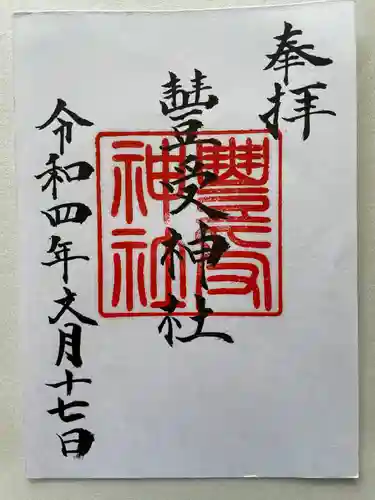 奉拝
豊受神社
豊受神社
令和四年六月十七日